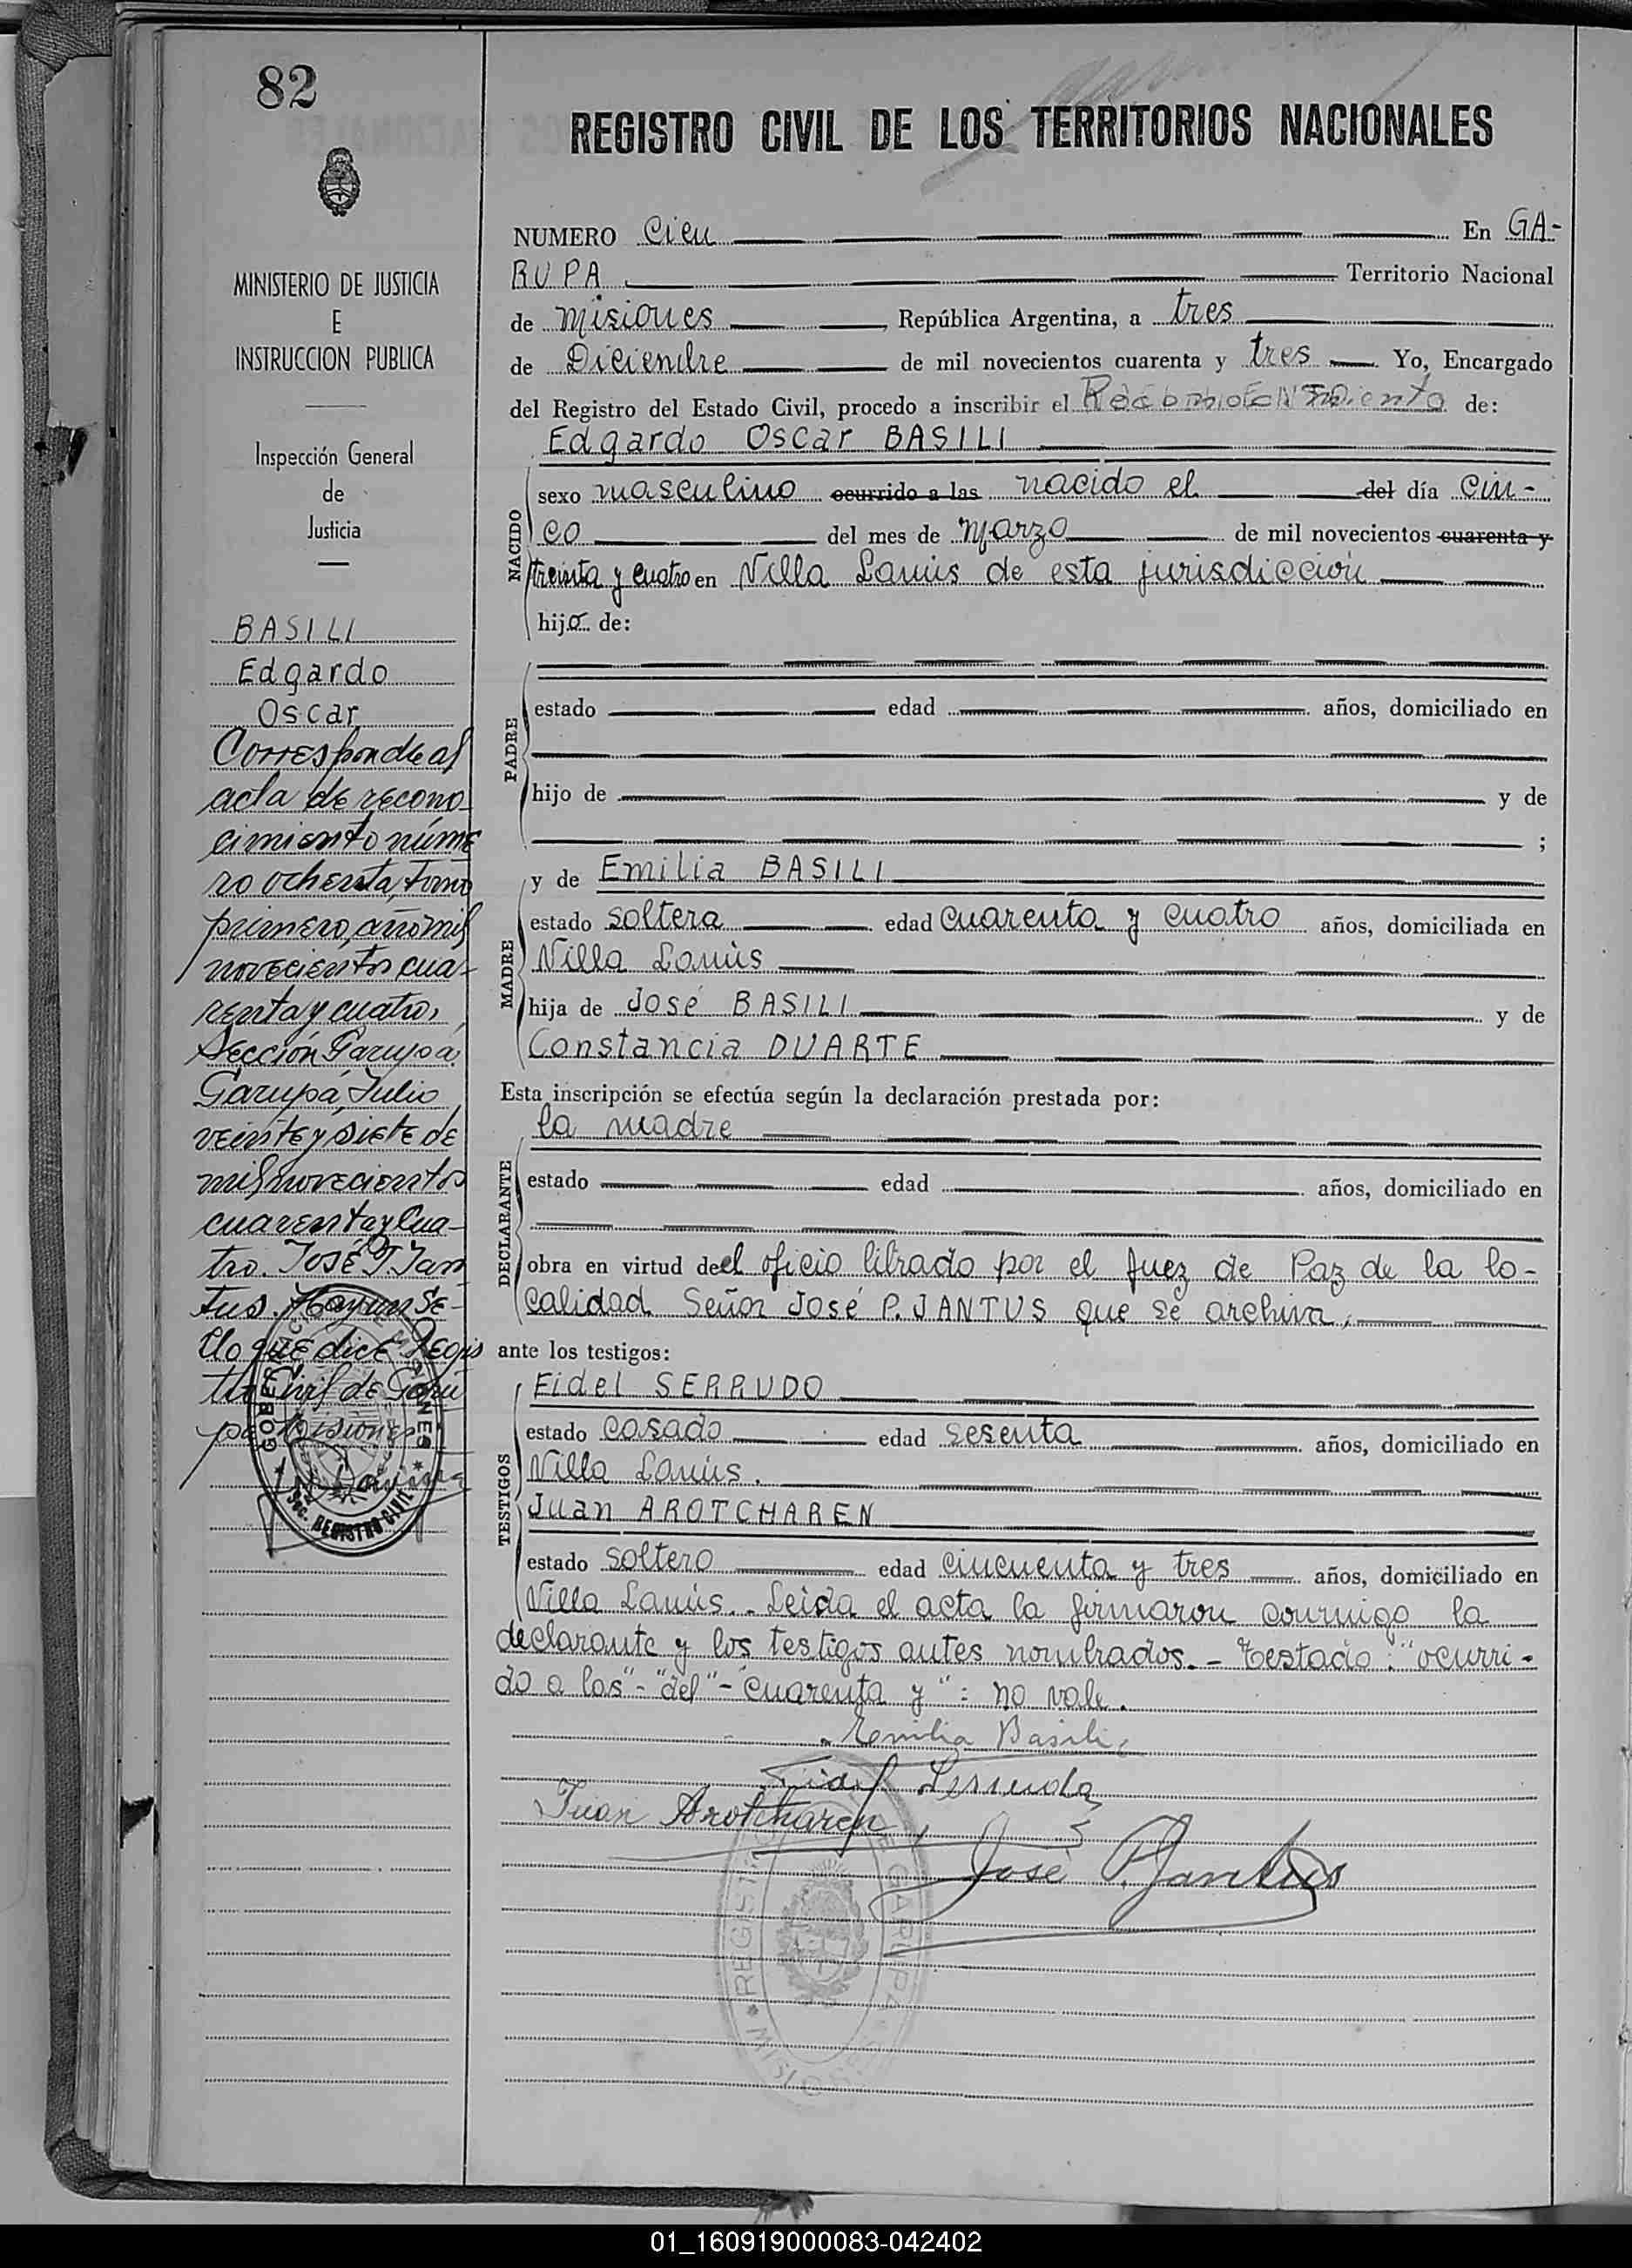 82
REGISTRO CIVIL DE LOS TERRITORIOS NACIONALES
MINISTERIO DE JUSTICIA
E
INSTRUCCION PUBLICA
Inspección General
de
Justicia
BASILI
Edgardo
Oscar
Corresponde al
acta de recono-
cimiento núme
ro ochenta, tomo
primero, año mil
novecientos cua-
renta y cuatro,
Sección Garupá.
Garupá, Julio
veinte y siete de
mil novecientos
cuarenta y cua-
tro. José P. Jan
tus. Hay un se-
llo que dice Regis
tro Civil de Garu
pá Misiones
GOBERNACION MISIONES
Sec. REGISTRO CIVIL
NUMERO Cien En GA-
RUPA Territorio Nacional
de Misiones, República Argentina, a tres
de Diciembre de mil novecientos cuarenta y tres. Yo, Encargado
del Registro del Estado Civil, procedo a inscribir el Reconocimiento de:
Edgardo Oscar BASILI
NACIDO
sexo masculino ocurrido a las nacido el del día cin-
co del mes de Marzo de mil novecientos cuarenta y
treinta y cuatro en Villa Lanús de esta jurisdicción
hijo de:
PADRE
estado edad años, domiciliado en
hijo de y de
;
MADRE
y de Emilia BASILI
estado soltera edad cuarenta y cuatro años, domiciliada en
Villa Lanús
hija de José BASILI y de
Constancia DUARTE
Esta inscripción se efectúa según la declaración prestada por:
la madre
DECLARANTE
estado edad años, domiciliado en
obra en virtud de el oficio librado por el Juez de Paz de la lo-
calidad Señor José P. JANTUS que se archiva,
ante los testigos:
TESTIGOS
Fidel SERRUDO
estado casado edad sesenta años, domiciliado en
Villa Lanús.
Juan AROTCHAREN
estado soltero edad cincuenta y tres años, domiciliado en
Villa Lanús.- Leida el acta la firmaron conmigo la
declarante y los testigos antes nombrados.- Testado: "ocurri-
do a las"-"del"-"cuarenta y": no vale.
Emilia Basili
Fidel Serrudo
Juan Arotcharen
José P. Jantus
REGISTRO DE GARUPA MISIO
01_160919000083-042402